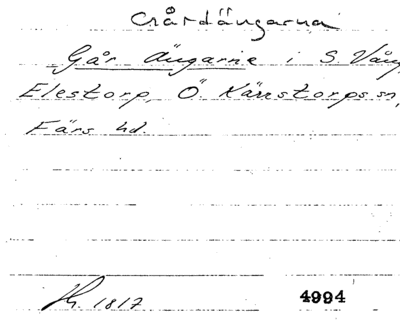 Gårdängarna
Går ängarne i S. Vång,
Elestorp, Ö. Kärrstorps sn,
Färs hd.
1817 4994